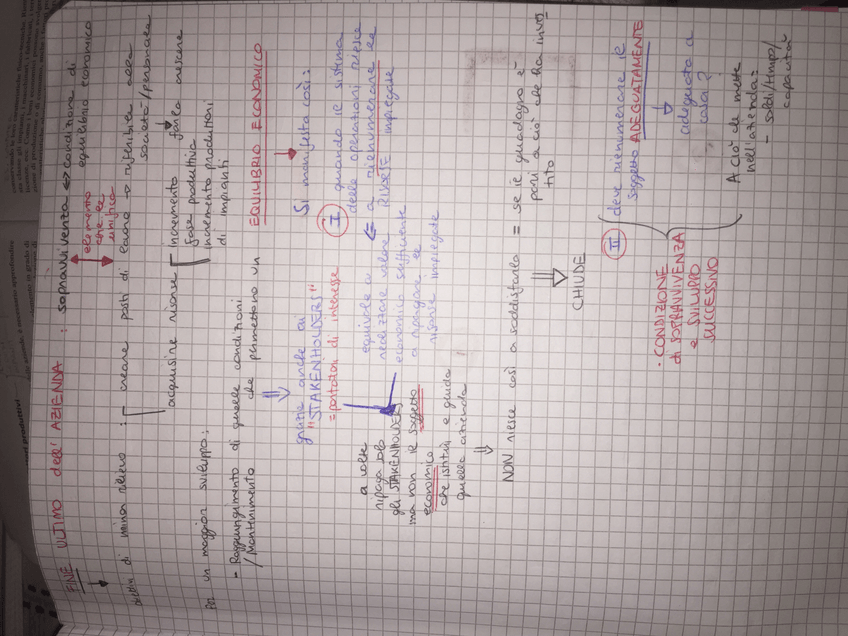 FINE ULTIMO dell'AZIENDA : sopravvivenza ⇔ condizione di
equilibrio economico
elemento
che le
unifica
di minor rilievo : creare posti di lavoro → riferibile alla
società/personale
acquisire risorse
incremento
fase produttiva
incremento produttori
di impianti
Per un maggior sviluppo:
- Raggiungimento di quelle condizioni
/Mantenimento che permettono un
EQUILIBRIO ECONOMICO
Si manifesta così:
grazie anche ai
"STAKENHOLDERS"
= portatori di interesse
I quando il sistema
delle operazioni riesce
a rienumerare le
RISORSE impiegate
equivale a
realizzare valore
economico sufficiente
a ripagare le
risorse impiegate
a volte
ripaga solo
gli STAKENHOLDERS
ma non il soggetto
economico
che istituì e guida
quella azienda
NON riesce così a soddisfarlo = se il guadagno è
pari a ciò che ha inves
tito
CHIUDE
III deve rienumerare il
soggetto ADEGUATAMENTE
adeguata a
cosa?
A ciò che mette
nell'azienda:
- soldi/tempo/
capacità
• CONDIZIONE
di SOPRAVVIVENZA
e SVILUPPO
SUCCESSIVO